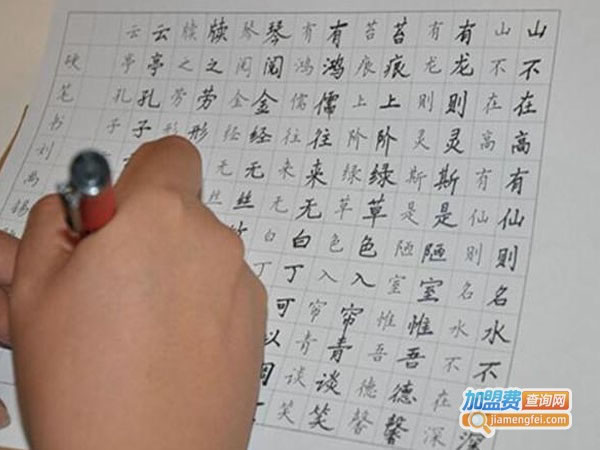 山不在高有仙则名水不深
山不在高有仙则名水不在深
有龙则灵斯是陋室惟吾德馨
有龙则灵斯是陋室惟吾德馨
苔痕上阶绿草色入帘青谈笑
苔痕上阶绿草色入帘青谈笑
有鸿儒往来无白丁可以
有鸿儒往来无白丁
琴阅金经无丝
琴阅金经无丝
牍之劳形
牍之劳形
云亭孔子
云亭孔子
硬笔书刘禹锡
加盟费查询网
jiamengfei.com